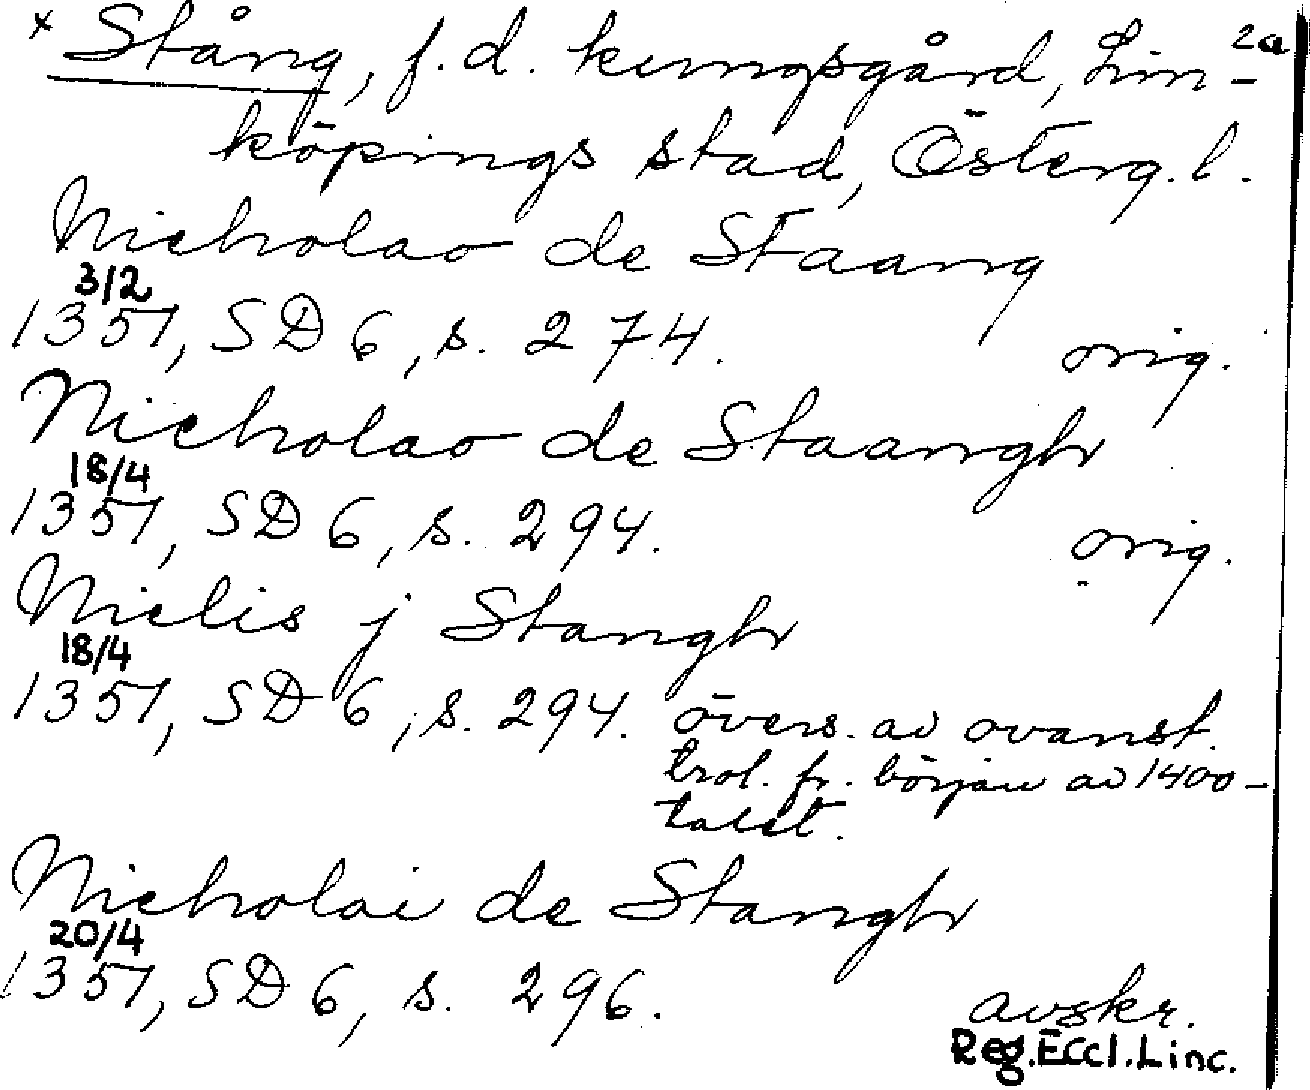 x Stång, f.d. kungsgård, Lin- 2a
köpings stad, Österg.l.
Nicholao de Staang
3/2
1351, SD 6, s. 274. orig.
Nicholao de Staangh
18/4
1351, SD 6, s. 294. orig.
Niclis j Stangh
18/4
1351, SD 6, s. 294. övers. av ovanst.
trol. fr. början av 1400-
talet.
Nicholai de Stangh
20/4
1351, SD 6, s. 296. avskr.
Reg.Eccl.Linc.